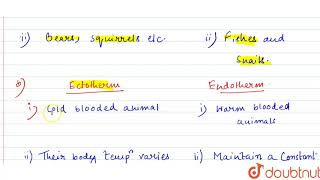 ii) Bears, squirrels etc.
ii) Fishes and
snails.
b) Ectotherm
Endotherm
i) Cold blooded animal
i) Warm blooded
animals
ii) Their body tempⁿ varies
ii) Maintain a Constant
doubtnut